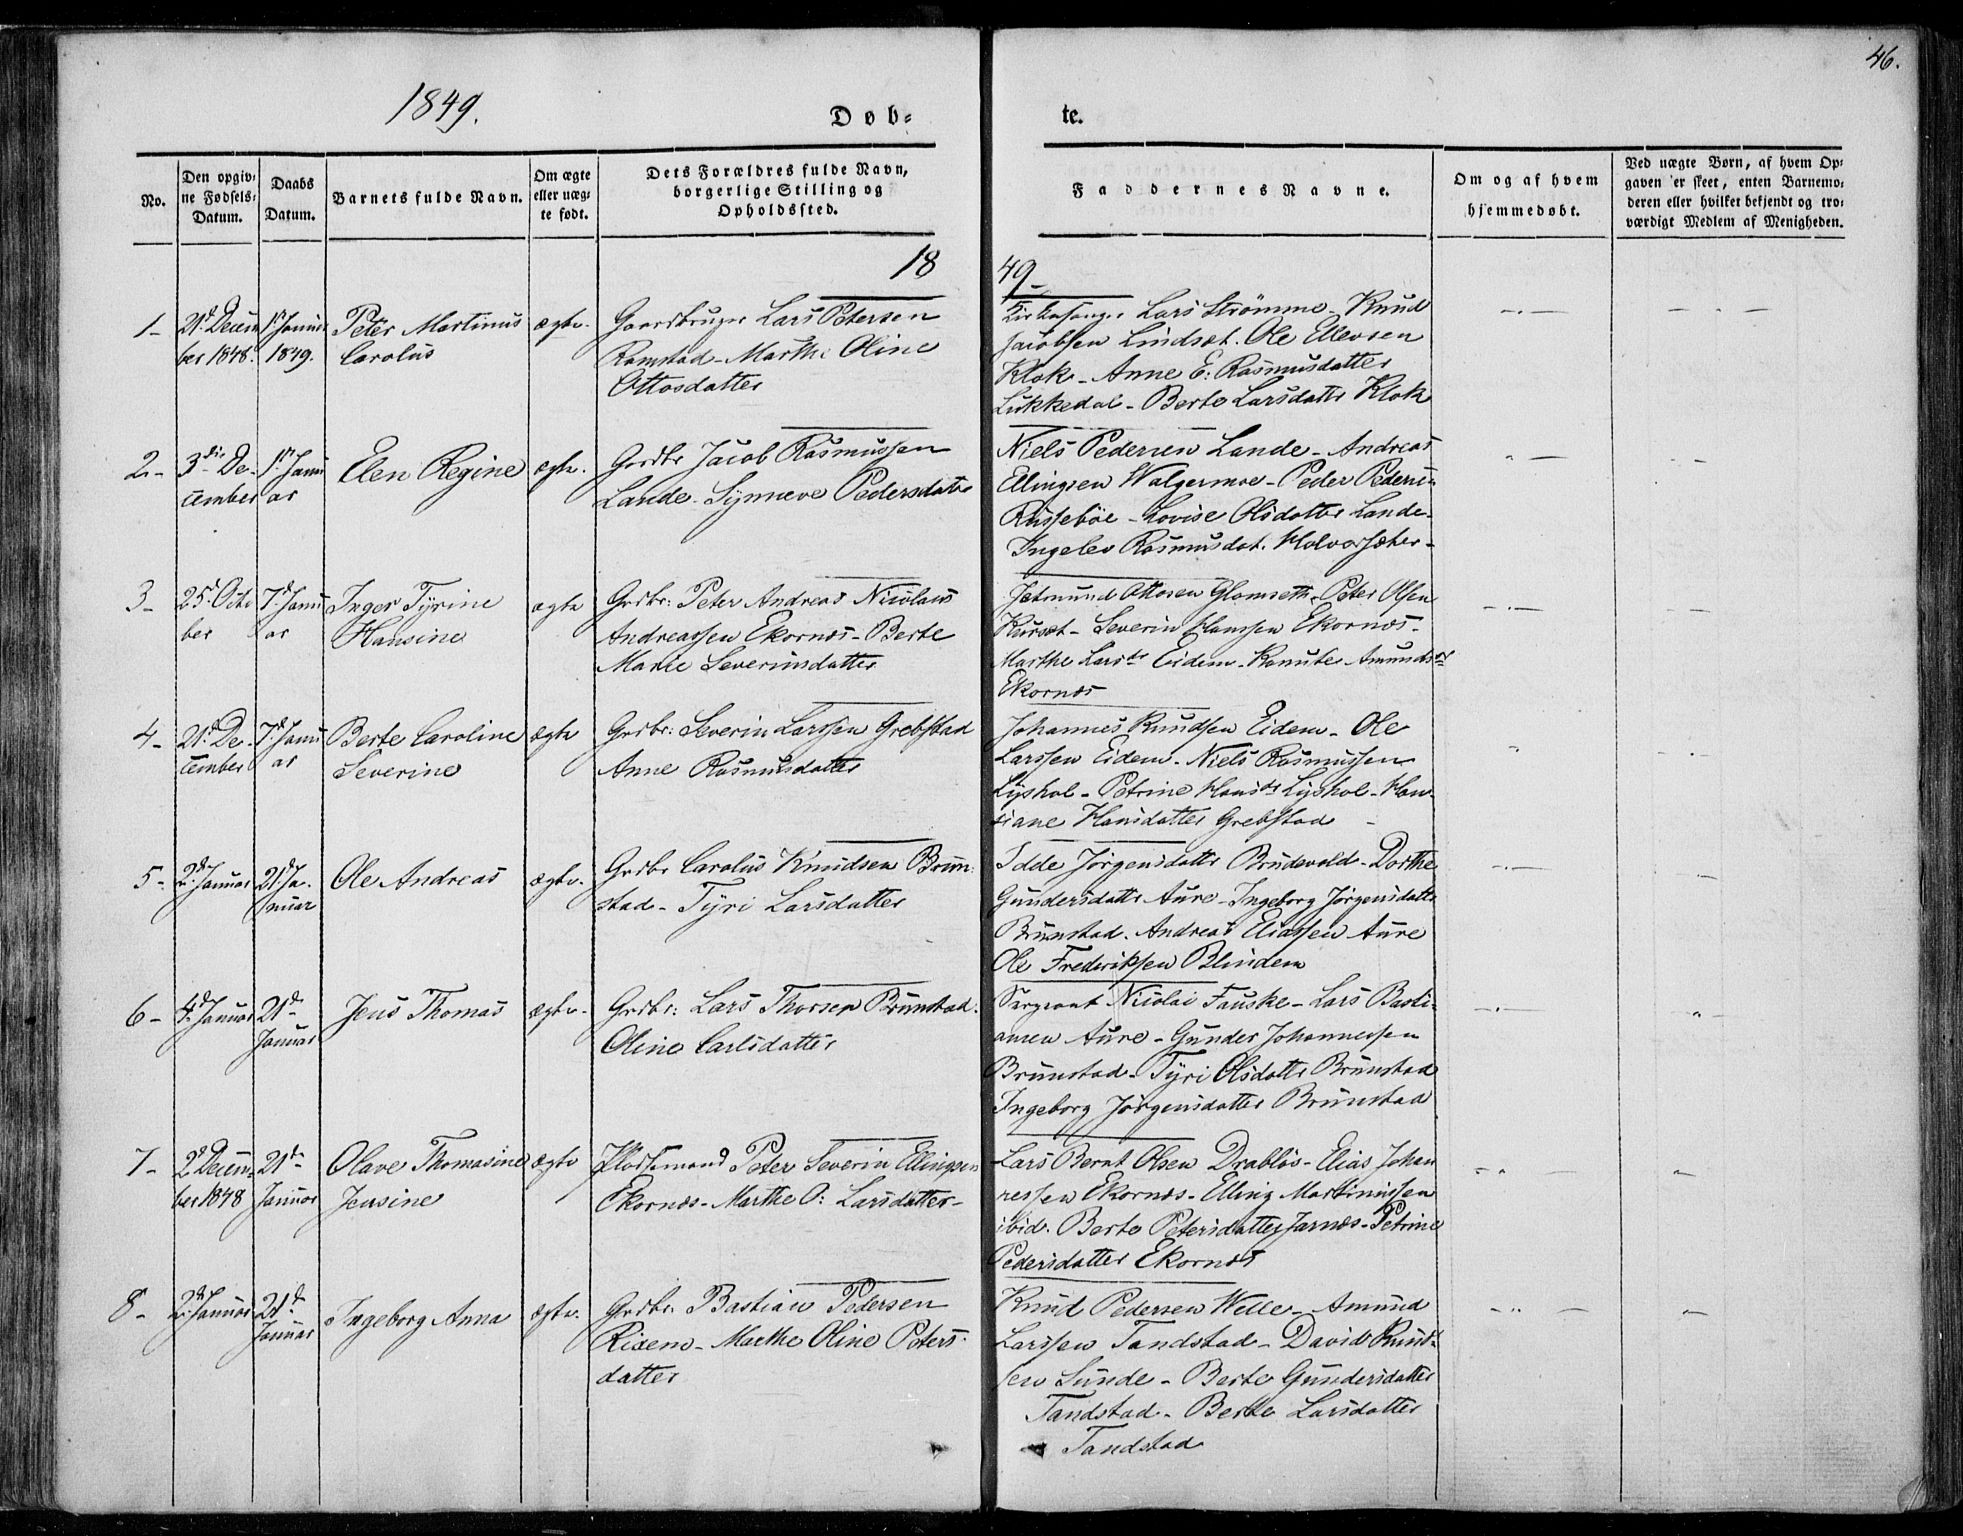 46.
1849.
Døb-
te.
No.
Den opgiv-
ne Fødsels-
Datum.
Daabs
Datum.
Barnets fulde Navn.
Om ægte
eller uæg-
te født.
Dets Forældres fulde Navn,
borgerlige Stilling og
Opholdssted.
Faddernes Navne.
Om og af hvem
hjemmedøbt.
Ved uægte Børn, af hvem Op-
gaven er skeet, enten Barnemo-
deren eller hvilket bekjendt og tro-
værdigt Medlem af Menigheden.
18
49
1-
21d Decem
ber 1848.
1st Januar
1849.
Peter Martinus
Carolus
ægte.
Gaardbruger Lars Petersen
Ramstad - Marthe Oline
Ottosdatter
Kirkesanger Lars Strömme - Knud
Jacobsen Lindset. Ole Ellevsen
Klok - Anne E: Rasmusdatter
Lykkedal - Berte Larsdatter Klok
2-
3die De-
cember
1st Janu
ar
Elen Regine
ægte.
Grdbr Jacob Rasmussen
Lande. Synneve Pedersdatter
Niels Pedersen Lande - Andreas
Ellingsen Walgermoe - Peder Pedersen
Russebøe - Lovise Olsdatter Lande -
Ingelev Rasmusdat. Holvorsæter -
3-
25d Octo
ber
7d Janu
ar
Inger Tyrine
Hansine
ægte
Grdbr: Peter Andreas Nicolaus
Andreassen Ekornæs - Berte
Marie Severinsdatter
Jetmund Ottosen Glomseth. Peter Olsen
Kurset - Severin Hanssen Ekornæs -
Marthe Larsdr Eidem - Kanute Amundsdr
Ekornæs
4-
21d De-
cember
7d Janu
ar
Berte Caroline
Severine
ægte
Grdbr: Severin Larssen Grebstad
Anne Rasmusdatter
Johannes Knudsen Eidem - Ole
Larssen Eidem - Niels Rasmussen
Lyshol - Petrine Hansdr Lyshol - Han-
siane Hansdatter Grebstad -
5-
2d Januar
21d Ja-
nuar
Ole Andreas
ægte.
Grdbr Carolus Knudsen Brun-
stad - Tyri Larsdatter
Idde Jörgensdatter Brudevold - Dorthe
Gundersdatter Aure - Ingeborg Jörgensdatter
Brunstad. Andreas Eliassen Aure
Ole Frederiksen Blindem
6-
4d Januar
21d
Januar
Jens Thomas
ægte.
Grdbr: Lars Thorsen Brunstad:
Oline Carlsdatter
Sergeant Nicolai Fauske - Lars Basti-
ansen Aure - Gunder Johannessen
Brunstad - Tyri Olsdatter Brunstad
Ingeborg Jörgensdatter Brunstad
7-
2d Decem-
ber 1848
21d
Januar
Olave Thomasine
Jensine
ægte
Plodsmand Peter Severin Ellingsen
Ekornæs - Marthe P: Larsdatter -
Lars Bernt Olsen Drabløs - Elias Johan
nessen Ekornæs - Elling Martinussen
ibid. Berte Petersdatter Jarnæs - Petrine
Pedersdatter Ekornæs
8-
2d Januar
21d
Januar
Ingeborg Anna
ægte.
Grdbr: Bastian Pedersen
Risem - Marthe Oline Peters-
datter
Knud Pedersen Welle - Amund
Larssen Tandstad - David Knud-
sen Sunde - Berte Gundersdatter
Tandstad - Berte Larsdatter
Tandstad